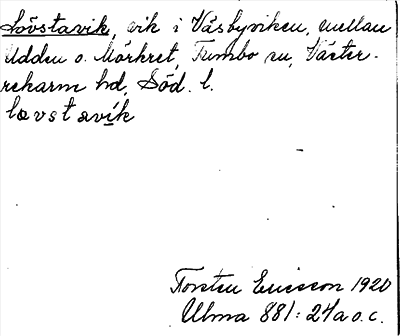 Lövstavik, vik i Väsbyviken, mellan
Udden o. Mörkret, Tumbo sn, Väster-
rekarm hd, Söd. l.
lœvstavík
Torsten Ericsson 1920
Ulma 881: 24a o.c.